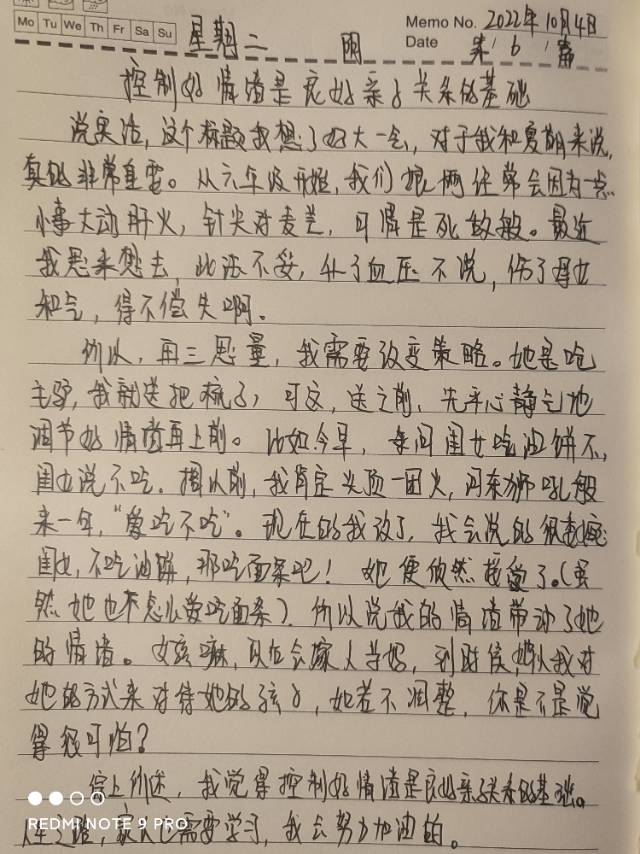 Mo Tu We Th Fr Sa Su
Memo No. 2022年10月4日
Date 第6篇
星期二 阴
控制好情绪是良好亲子关系的基础
说实话,这个标题我想了好大一会,对于我和夏期来说,
真的非常重要。从六年级开始,我们娘俩经常会因为一点
小事大动肝火,针尖对麦芒,可惜是死敌般。最近
我思来想去,此法不妥,升了血压不说,伤了母女
和气,得不偿失啊。
所以,再三思量,我需要改变策略。她是吃
主张,我就送把梳子,可这,送之前,先平心静气地
调节好情绪再上前。比如今早,我问闺女吃油饼不,
闺女说不吃。搁以前,我肯定头顶一团火,河东狮吼般
来一句,“爱吃不吃”。现在的我改了,我会说的很委婉
闺女,不吃油饼,那吃面条吧!她便欣然接受了。(虽
然她也不怎么爱吃面条)。所以说我的情绪带动了她
的情绪。女孩嘛,现在会嫁人当妈,到时候,她以我对
她的方式来对待她的孩子,如若不调整,你是不是觉
得很可怕?
综上所述,我觉得控制好情绪是良好亲子关系的基础。
人生之路,家人也需要学习,我会努力加油的。
REDMI NOTE 9 PRO